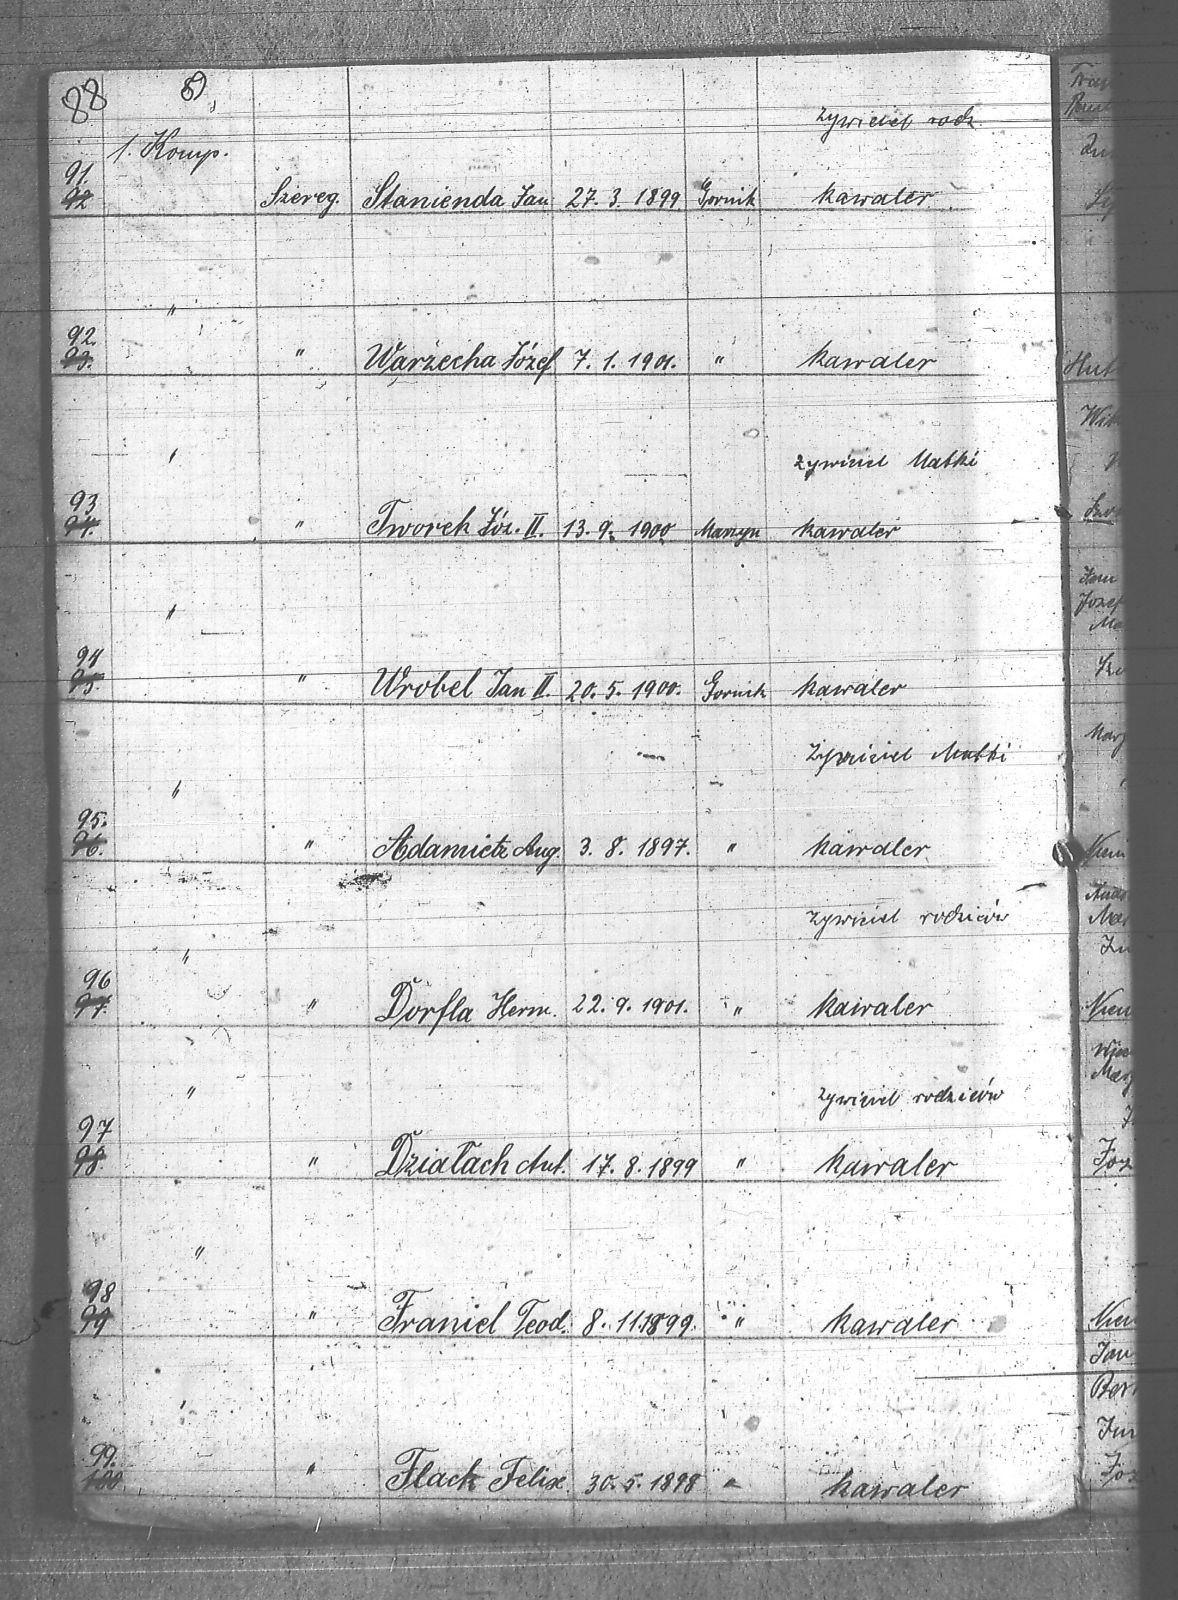 88 89
żywiciel rodz.
1. Komp.
91.
92 Szereg. Stanienda Jan 27. 3. 1899. Gornik kawaler
"
92.
93. " Warzecha Józef 7. 1. 1901. " kawaler
" żywiciel Matki
93
94. " Tworek Józ. II. 13. 9. 1900 Maszyn kawaler
"
94
95. " Wrobel Jan II. 20. 5. 1900. Gornik kawaler
żywiciel Matki
"
95.
96. " Adamietz Aug. 3. 8. 1897. " kawaler
żywiciel rodziców
"
96
97. " Dorfla Herm. 22. 9. 1901. " kawaler
" żywiciel rodziców
97
98. " Działach Ant. 17. 8. 1899 " kawaler
"
98
99 " Franiel Teod. 8. 11. 1899. " kawaler
"
99.
100 " Flack Felix 30. 5. 1898 " kawaler